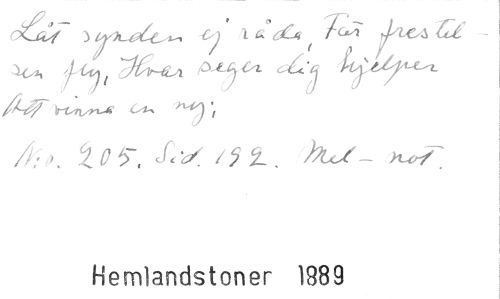 Låt synden ej råda, För frestel-
sen fly, Hvar seger dig hjelper
Att vinna en ny;
N:o. 205. Sid. 192. Mel-not.
Hemlandstoner 1889